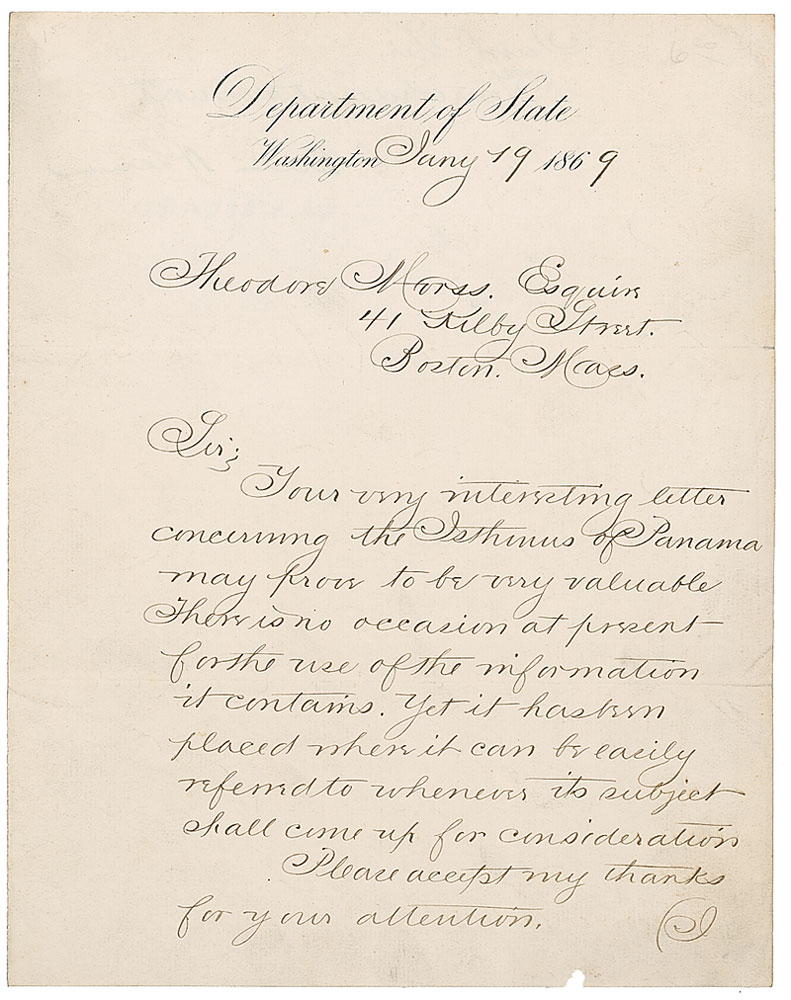 Department of State
Washington Jany 19 1869
Theodore Morss. Esquire
41 Kilby Street.
Boston. Mass.
Sir;
Your very interesting letter
concerning the Isthmus of Panama
may prove to be very valuable
There is no occasion at present
for the use of the information
it contains. Yet it has been
placed where it can be easily
referred to whenever its subject
shall come up for consideration
Please accept my thanks
for your attention.
I